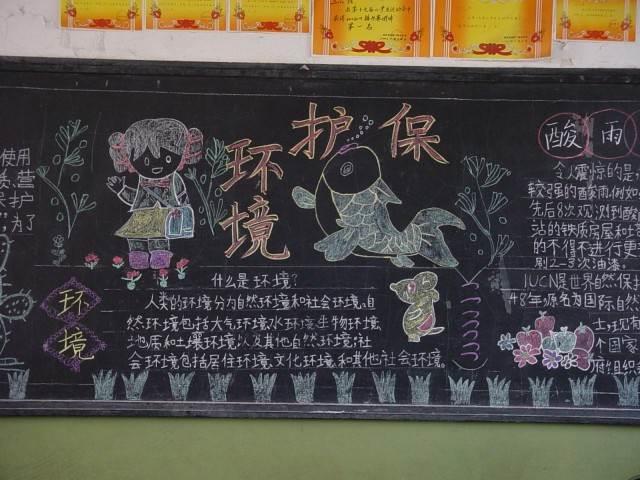 第一名
环境护保
酸雨
使用
营
保护
为了
环境
什么是环境?
人类的环境分为自然环境和社会环境.自
然环境包括大气环境.水环境.生物环境.
地质和土壤环境以及其他自然环境.社
会环境包括居住环境.文化环境和其他社会环境。
令人震惊的是,
较强的酸雨.例如
先后8次观测到酸
站的铁质房屋和
的不得不进行更
刷2-3次油漆.
IUCN是世界自然保
48年.源名为国际自然
士.现有
个国家
府组织